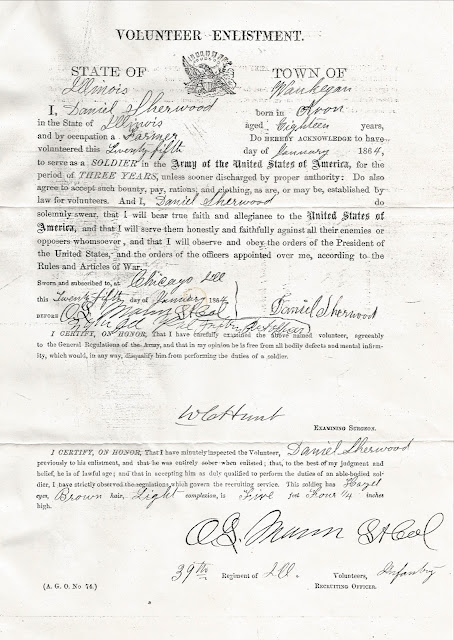 VOLUNTEER ENLISTMENT.
STATE OF TOWN OF
Illinois Waukegan
I, Daniel Sherwood born in Avon
in the State of Illinois aged Eighteen years,
and by occupation a Farmer Do HEREBY ACKNOWLEDGE to have
volunteered this Twenty fifth day of January 1864,
to serve as a SOLDIER in the Army of the United States of America, for the
period of THREE YEARS, unless sooner discharged by proper authority: Do also
agree to accept such bounty, pay, rations, and clothing, as are, or may be, established by
law for volunteers. And I, Daniel Sherwood do
solemnly swear, that I will bear true faith and allegiance to the United States of
America, and that I will serve them honestly and faithfully against all their enemies or
opposers whomsoever, and that I will observe and obey the orders of the President of
the United States, and the orders of the officers appointed over me, according to the
Rules and Articles of War.
Sworn and subscribed to, at Chicago Ill
this Twenty Fifth day of January 1864
BEFORE O.L. Mann Lt Col Daniel Sherwood
I CERTIFY, ON HONOR, That I have carefully examined the above named volunteer, agreeably
to the General Regulations of the Army, and that in my opinion he is free from all bodily defects and mental infirm-
ity, which would, in any way, disqualify him from performing the duties of a soldier.
W C Hunt
EXAMINING SURGEON.
I CERTIFY, ON HONOR, That I have minutely inspected the Volunteer, Daniel Sherwood
previously to his enlistment, and that he was entirely sober when enlisted; that, to the best of my judgment and
belief, he is of lawful age; and that in accepting him as duly qualified to perform the duties of an able-bodied sol-
dier, I have strictly observed the regulations which govern the recruiting service. This soldier has Hazel
eyes, Brown hair, Light complexion, is Five feet Four 1/4 inches
high.
O.L. Mann Lt Col
39th Regiment of Ill. Volunteers, Infantry
(A. G. O. No 74.) RECRUITING OFFICER.